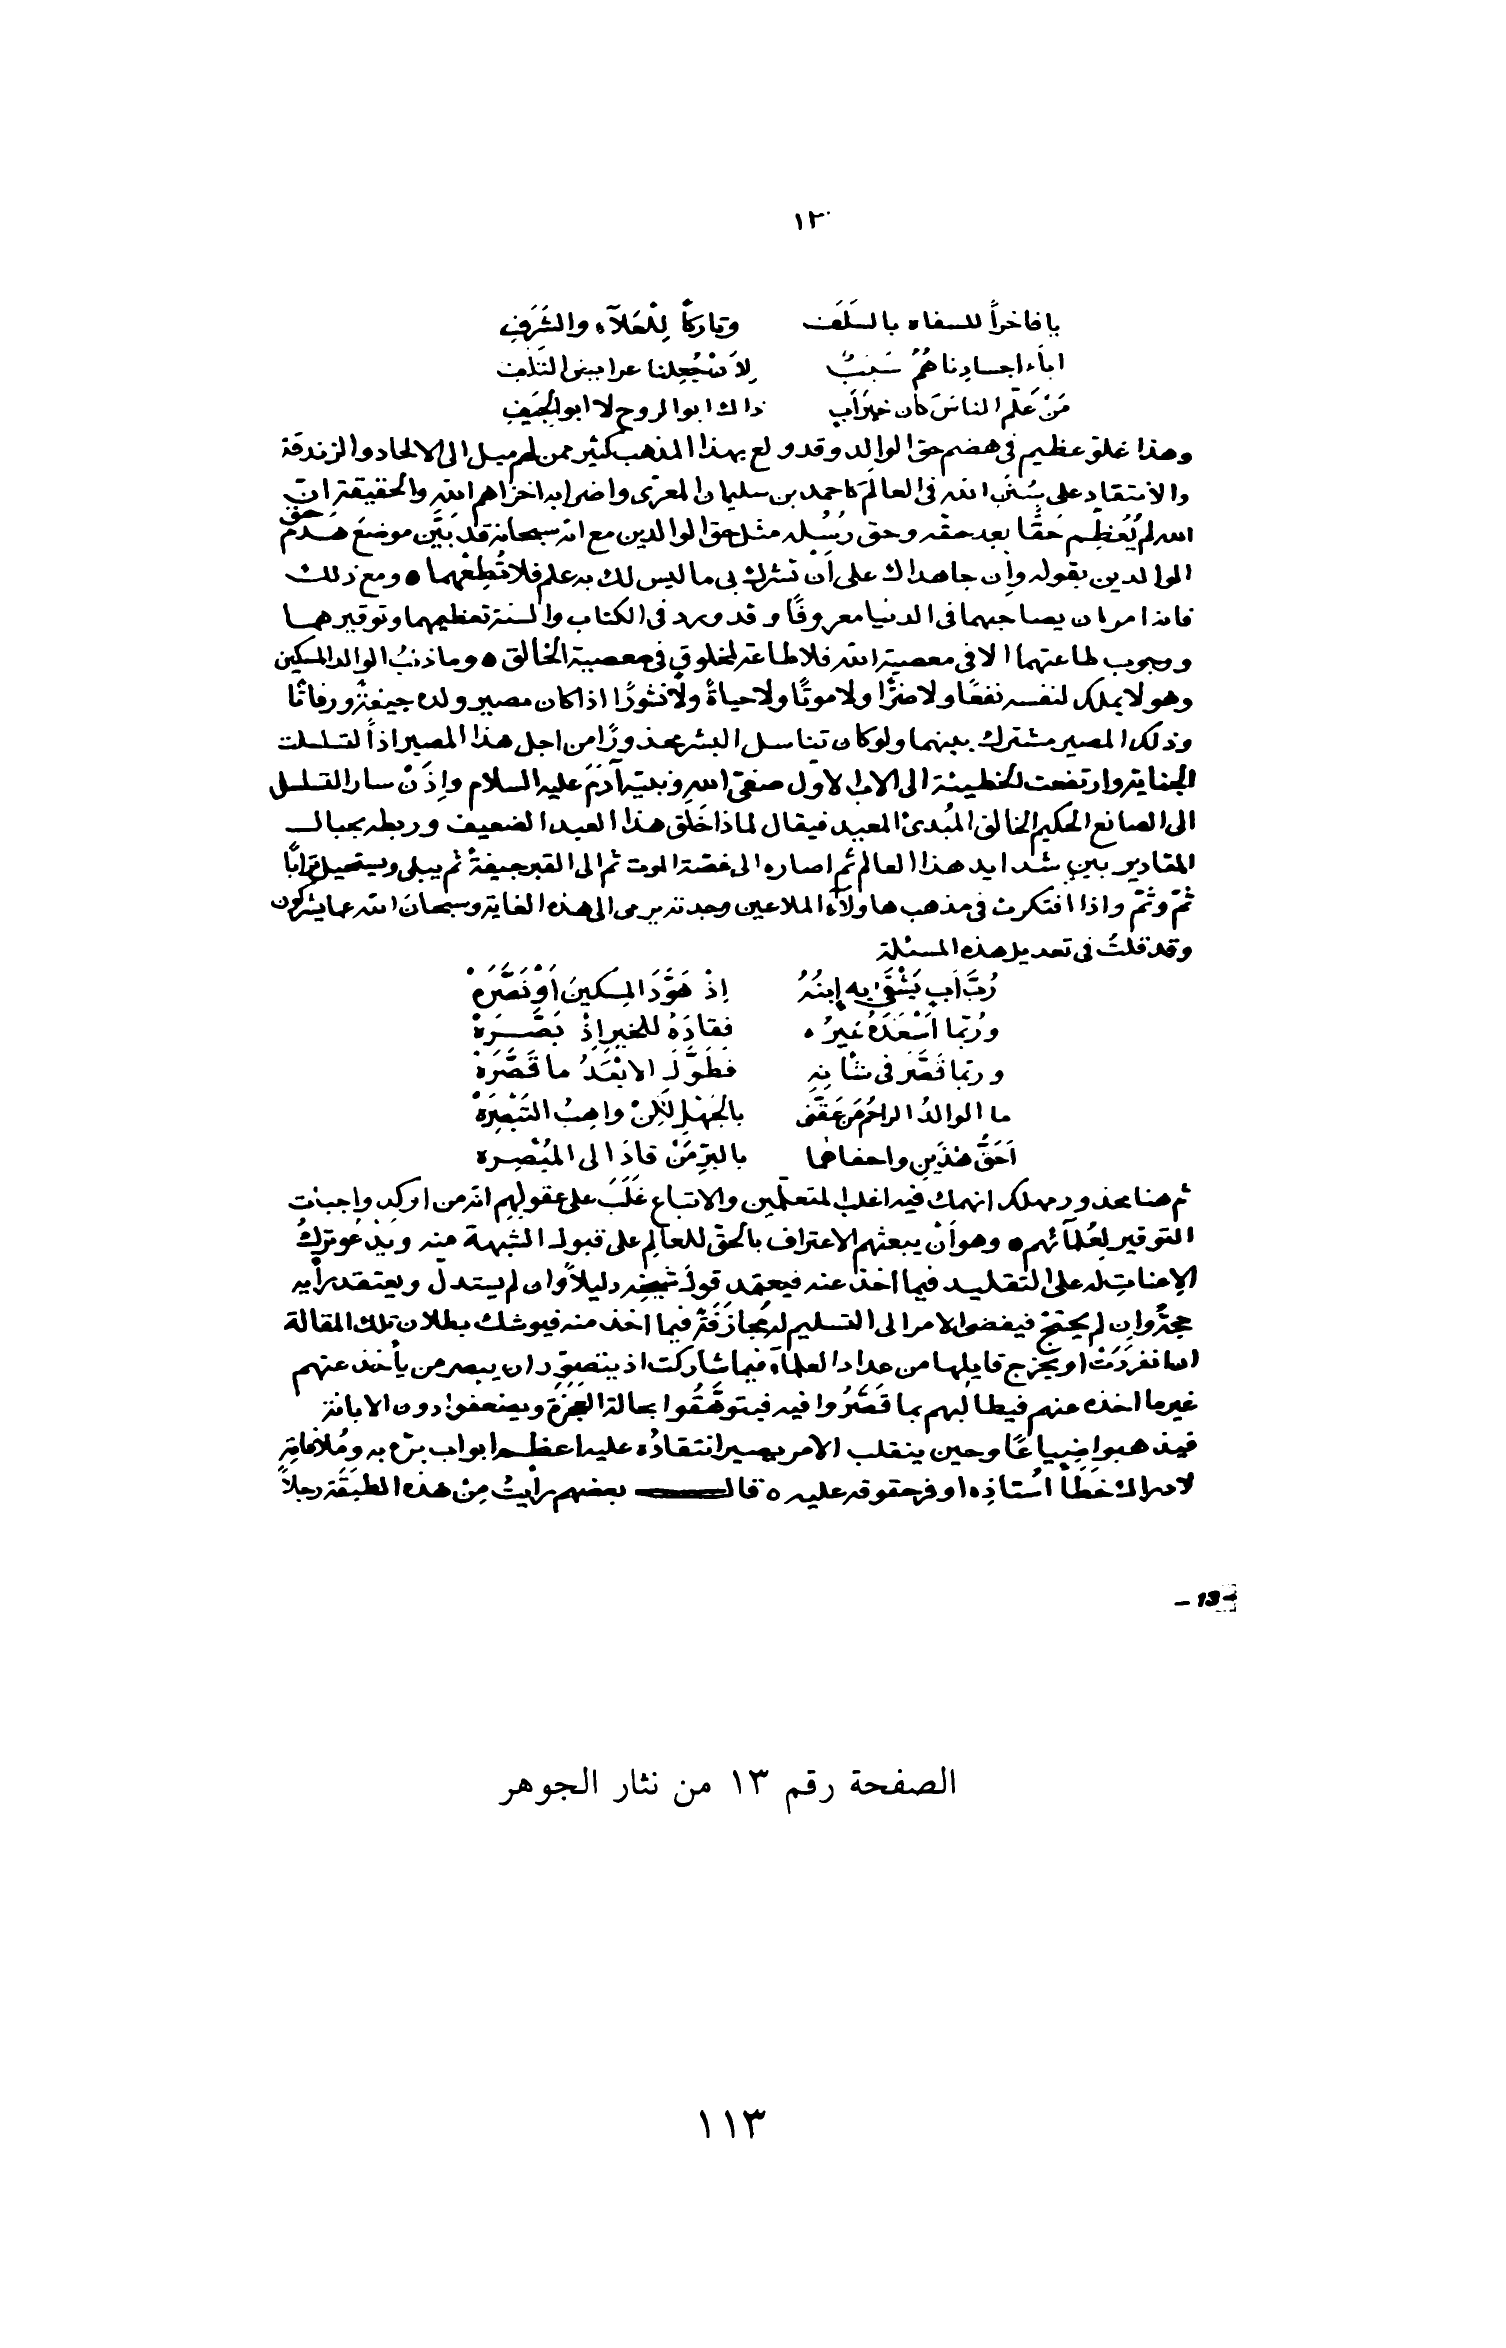 ١٣
يا فاخراً للسفاه بالسَلَف وتاركاً لِلْعَلآء والشَرَفِ
اباء اجسادِنا هُمُ سَبَبٌ لِاَنْ جُعِلنا عرايبى التَلَفِ
مَنْ عَلّم الناسَ كان خيرَ اَبٍ ذاك ابو الروح لا ابو الجِيَفِ
وهذا غلوّ عظيم فى هضم حق الوالِد وقد ولع بهذا المذهب كثير ممن لهم ميل الى الالحاد والزندقة
والانتقاد على سُنَنِ الله فى العالَم كاحمد بن سليمان المعرّى واضرابه اخزاهم الله والحقيقة انّ
الله لم يُعَظِّم حَقًّا بعد حقّه وحق رُسُله مثل حق الوالدين مع انه سبحانه قد بَيَّن موضعَ هَدْم حق
الوالدين بقوله وإن جاهداك على اَنْ تشرك بى ما ليس لك به علم فلا تُطِعْهما ه ومع ذلك
فانه امر ان يصاحبهما فى الدنيا معروفًا وقد ورد فى الكتاب والسنة تعظيمهما وتوقيرهما
ووجوب طاعتهما الا فى معصية الله فلا طاعة لمخلوق فى معصية الخالق ه وما ذنبُ الوالد المسكين
وهو لا يملك لنفسه نفعًا ولا ضرًّا ولا موتًا ولا حياةً ولا نشورًا اذا كان مصير ولده جيفةً ورفاتًا
وذلك المصير مشترك بينهما ولو كان تناسل البشر محذورًا من اجل هذا المصير اذاً لتسلسلت
الجناية وارتفعت الخطيئة الى الاب الاوّل صفىّ الله ونبيّه آدَمَ عليه السلام واِذَنْ سار التسلسل
الى الصانع الحكيم الخالق المُبدئ المعيد فيقال لماذا خَلَق هذا العبد الضعيف وربطه بحبال
المقادير بين شدايد هذا العالم ثم اصاره الى غصّة الموت ثم الى القبر جيفةً ثم يبلى ويستحيل ترابًا
ثمّ وثمّ واذا افتكرت فى مذهب هاولآء الملاعين وجدته يرمى الى هذه الغاية وسبحان الله عما يشركون
وقد قلتُ فى تعديل هذه المسئلة
رُبَّ اَبٍ يَشْقَىٰ به اِبنُهُ اِذْ هَوَّدَ المِسكينَ اَوْ نَصَّرَهْ
ورُبّما اَسْعَدَهُ غيرُه فقادَهُ للخيرِ اِذْ بَصَّرَهْ
وربّما قَصَّرَ فى شأنِهِ فَطَوَّلَ الابْعَدُ ما قَصَّرَهْ
ما الوالدُ الراحمُ مَن عَقَّنى بالجَهْلِ لٰكِنْ واهِبُ التَبْصِرَهْ
اَحَقُّ هٰذَينِ واحفاهما بالبرِّ مَنْ قادَ الى المُبْصِره
ثم هنا محذور مهلك انهمك فيه اغلب المتعلّمين والاتباع غَلَبَ على عقولهم انه من اوكد واجبات
التوقير لِعُلَمآئهم ه وهو اَنْ يبعثهم الاعتراف بالحقّ للعالِم على قبول الشبهة منه ويَدْعُو تركُ
الاعنات له على التقليد فيما اخذ عنه فيعتمد قولَ شيخه دليلاً وان لم يستدلّ ويعتقد رأيه
حجةً وان لم يحتجّ فيفضى الامر الى التسليم له مُجازَفَةً فيما اخذ منه فيوشك بطلان تلك المقالة
ان انفرَدَتْ او يخرج قايلها من عداد العلمآء فيما شاركت اذ يتصوّر ان يبصر من يأخذ عنهم
غير ما اخذه عنهم فيطالبهم بما قَصَّرُوا فيه فيتوقَّفُوا بحالة العجز ويضعفوا دون الابانة
فيذهبوا ضِياعًا وحين ينقلب الامر يصير انتقادُه عليه اعظم ابواب برّه به ومُلافاتِهِ
لادراك خَطَأ اُستاذِه اوفر حقوقه عليه ه قال بعضهم رأيتُ مِنْ هذه الطبَقَة رجلاً
- 13 -
الصفحة رقم ١٣ من نثار الجوهر
١١٣